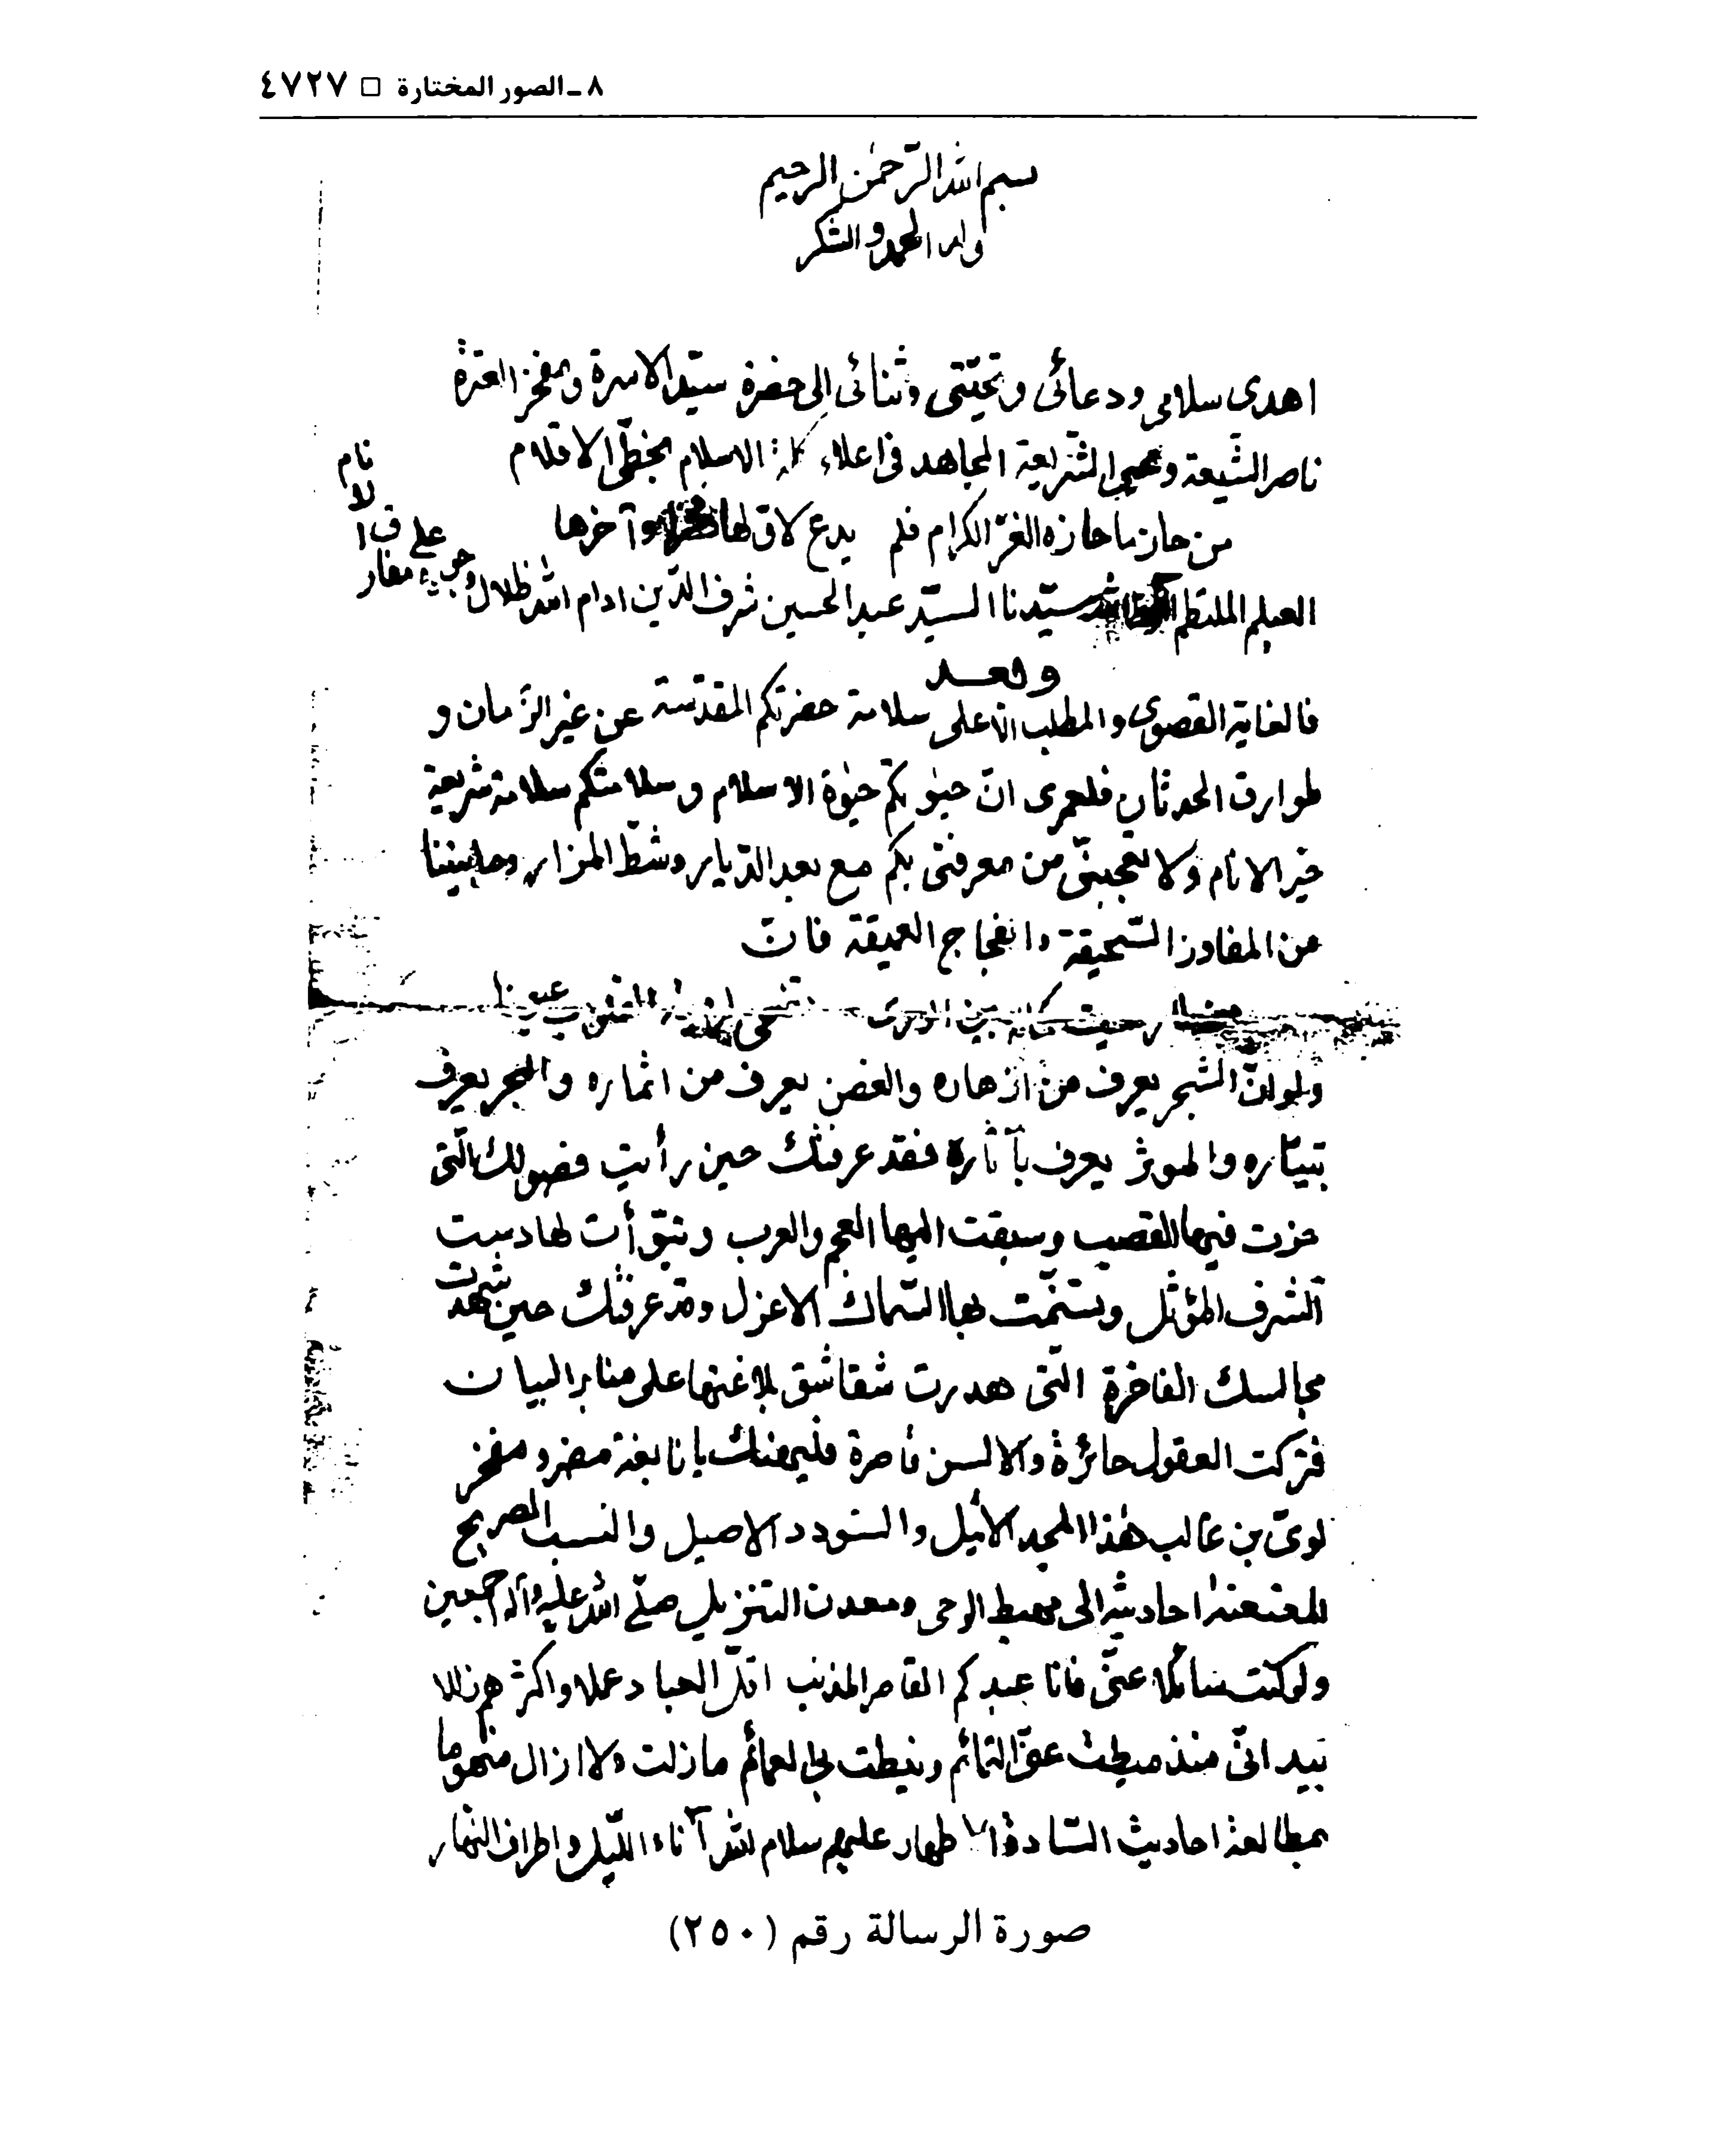 ٨ ـ الصور المختارة □ ٤٧٢٧
بسم الله الرحمن الرحيم
وله الحمد والشكر
اهدى سلامى ودعائى وتحيّتى وثنائى الى حضرة سيّد الاسرة ومفخر العترة
ناصر الشيعة ومحيى الشريعة المجاهد فى اعلاء كلمة الاسلام بخطّى الاقلام
من حاز ما حازه الغرّ الكرام فلم يدع لاق لها وآخرها
العيلم الملتطم سيّدنا السيّد عبد الحسين شرف الدين ادام الله ظلال
على
وبعد
فالغاية القصوى والمطلب الاعلى سلامة حضرتكم المقدّسة عن غير الزّمان و
طوارق الحدثان فلعمرى انّ حيوتكم حيوة الاسلام وسلامتكم سلامة شريعة
خير الانام ولا تعجبنّ من معرفتى بكم مع بعد الديار وشطّ المزار وما بيننا
من المفاوز السّحيقة والفجاج العميقة فانّ
بين الورى
ولو انّ الشجر يعرف من ازهاره والغصن يعرف من اثماره والبحر يعرف
بتيّاره والموثر يعرف بآثاره فقد عرفتك حين رأيت فصولك الّتى
حزت فيها القصب وسبقت اليها العجم والعرب وتبوّأت لها دست
الشرف المؤثل وتسنّمت بها السّماك الاعزل وقد عرفتك حين شهدت
مجالسك الفاخرة الّتى هدرت شقاشق بلاغتها على منابر البيان
فتركت العقول حائرة والالسن قاصرة فليهنك يا نابغة مضر ومفخر
لوىّ بن غالب هذا المجد الاثيل والسّودد الاصيل والنسب الصريح
المعنعنة احاديثه الى مهبط الوحى ومعدن التنزيل صلّى الله عليه وآله اجمعين
ولو كنت سائلا عنّى فانا عبدكم القاصر المذنب اقلّ العباد عملا واكثرهم زللا
بيد انّى منذ ميطت عنّى التمائم ونيطت بى العمائم ما زلت ولا ازال منهوما
بمطالعة احاديث السّادة الاطهار عليهم سلام الله آناء اللّيل واطراف النهار
صورة الرسالة رقم (٢٥٠)